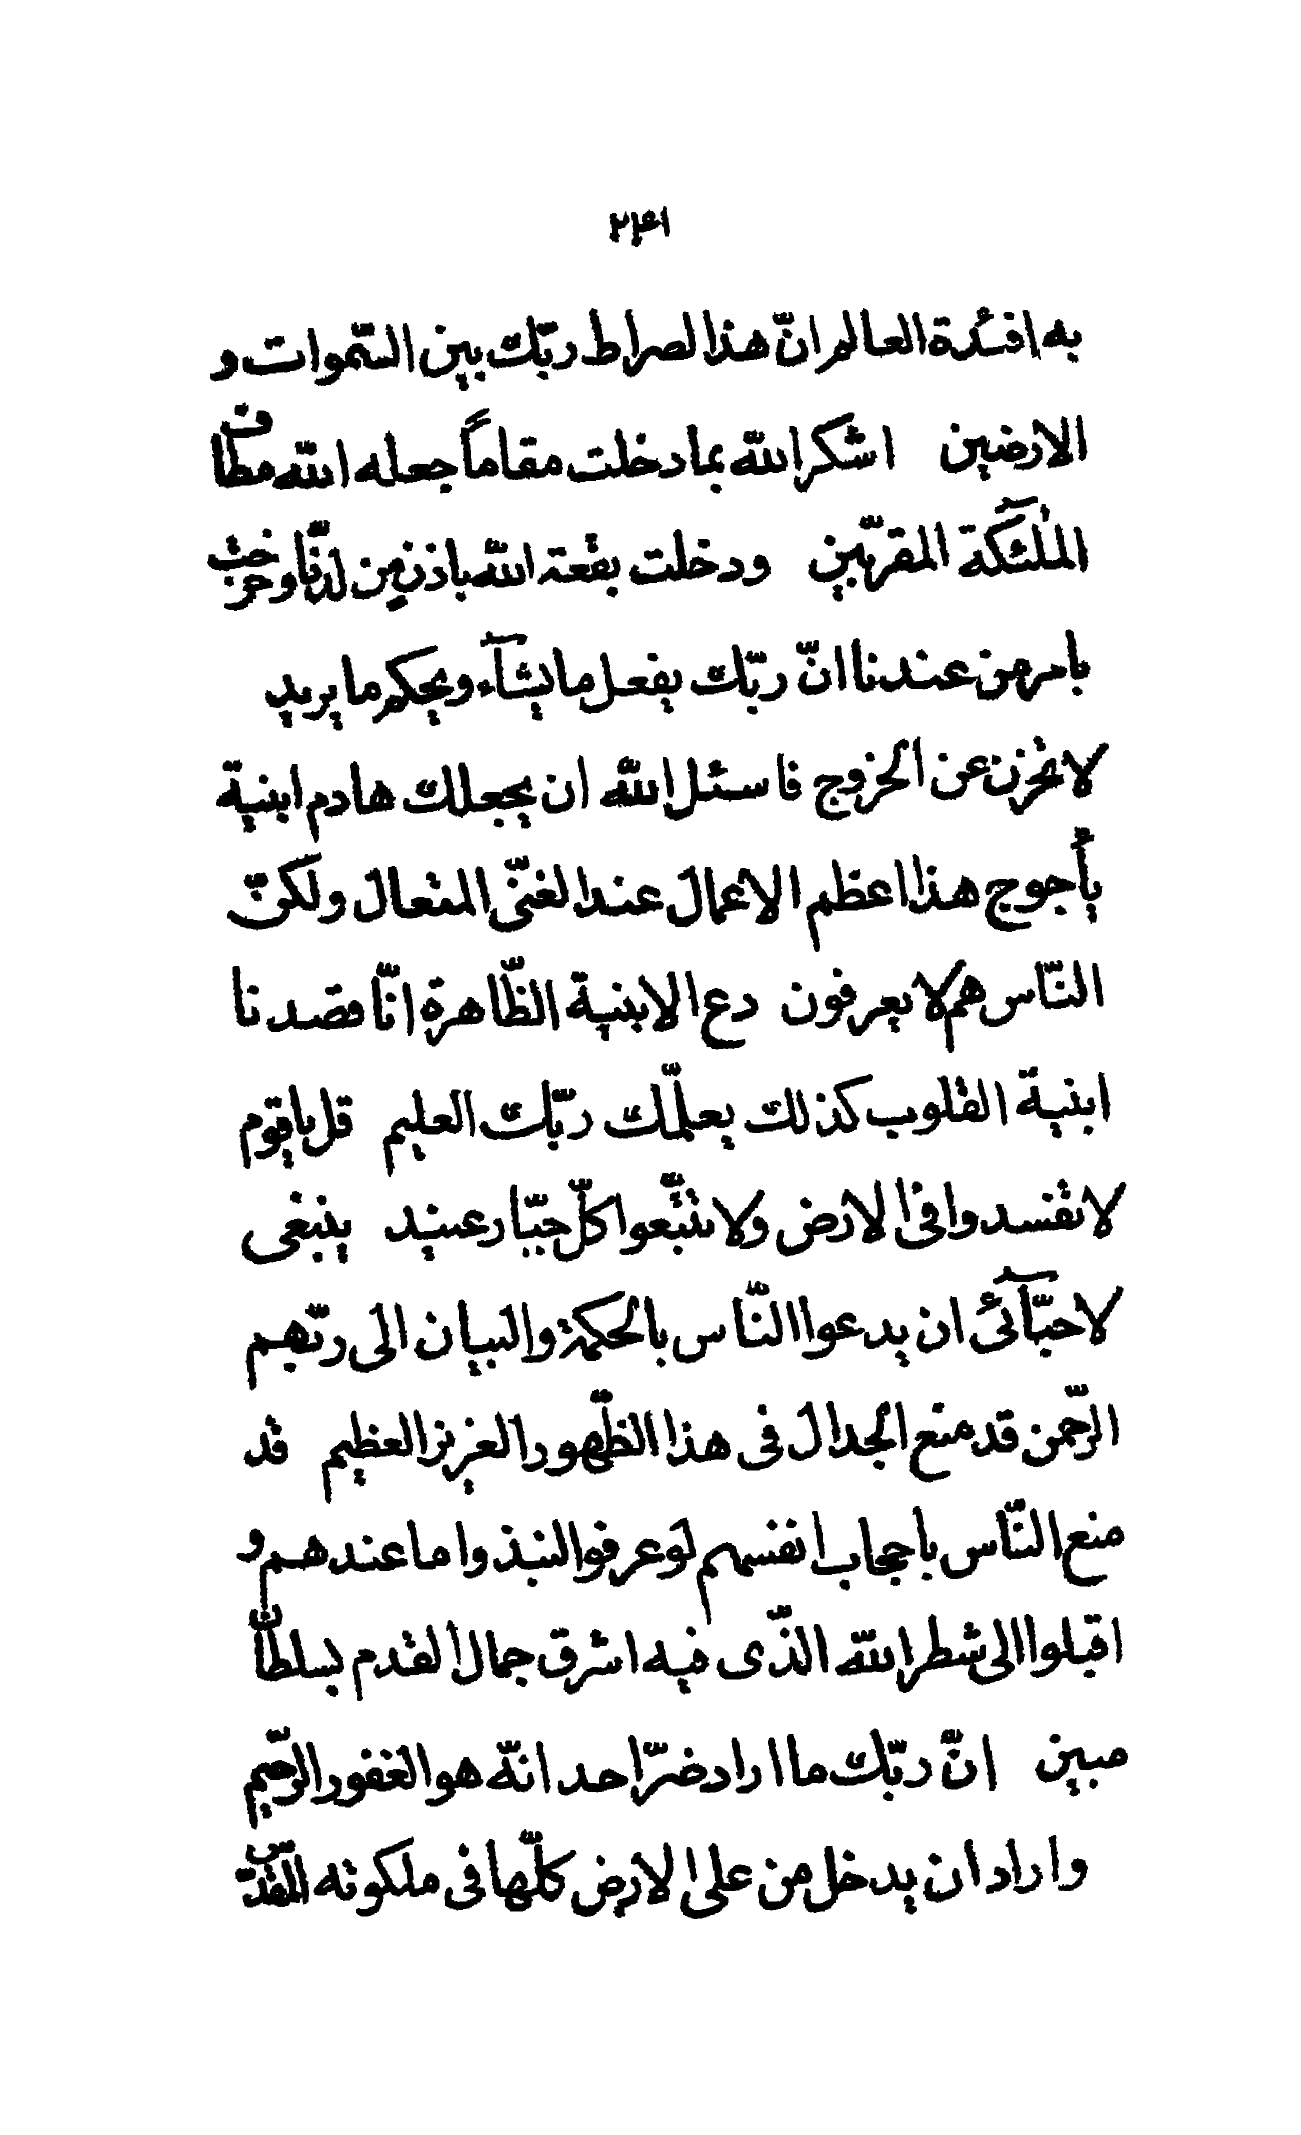 ۲۴۱
به افئدة العالم انّ هذا لصراط ربّك بين السّموات و
الارضين اشكر الله بما دخلت مقاماً جعله الله مطاف
الملٰئكة المقرّبين ودخلت بقعة الله باذن من لدنّا وخرجت
بامر من عندنا انّ ربّك يفعل ما يشآء ويحكم ما يريد
لا تحزن عن الخروج فاسئل الله ان يجعلك هادم ابنية
يأجوج هذا اعظم الاعمال عند الغنىّ المتعال ولكنّ
النّاس هم لا يعرفون دع الابنية الظّاهرة انّا قصدنا
ابنية القلوب كذلك يعلّمك ربّك العليم قل ياقوم
لا تفسدوا فى الارض ولا تتّبعوا كلّ جبّار عنيد ينبغى
لاحبّآئى ان يدعوا النّاس بالحكمة والبيان الى ربّهم
الرّحمن قد منع الجدال فى هذا الظّهور العزيز العظيم قد
منع النّاس باحجاب انفسهم لو عرفوا لنبذوا ما عندهم و
اقبلوا الى شطر الله الّذى فيه اشرق جمال القدم بسلطان
مبين انّ ربّك ما اراد ضرّ احد انّه هو الغفور الرّحيم
واراد ان يدخل من على الارض كلّها فى ملكوته المقدّس